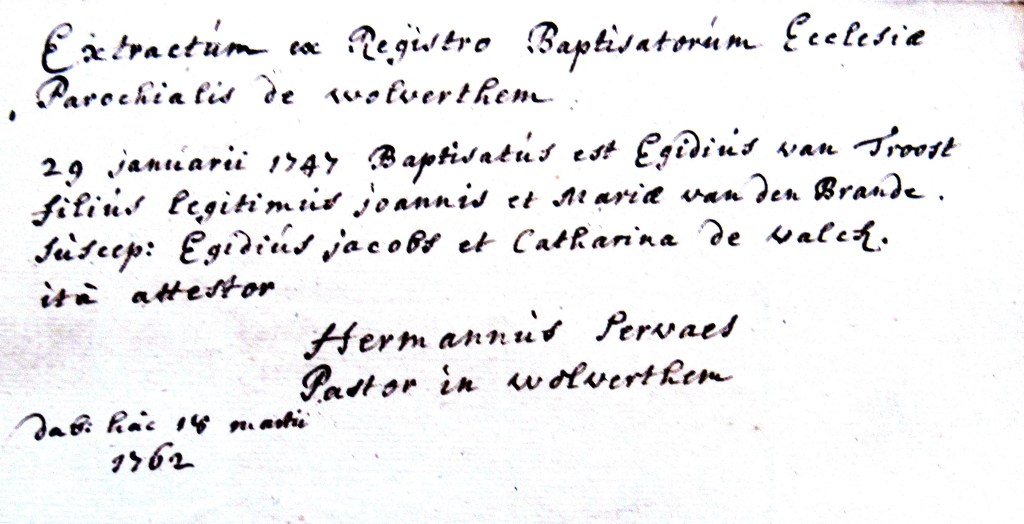 Extractúm ex Regÿstro Baptisatorúm Ecclesiæ
Parochialis de wolverthem
29 januarii 1747 Baptisatús est Egidiús van Troost
filiús legitimus joannis et Mariæ van den Brande.
súscep: Egidiús jacobs et Catharina de valck.
ità attestor
Hermannús Servaes
Pastor in wolverthem
dab: hác 18 martii
1762